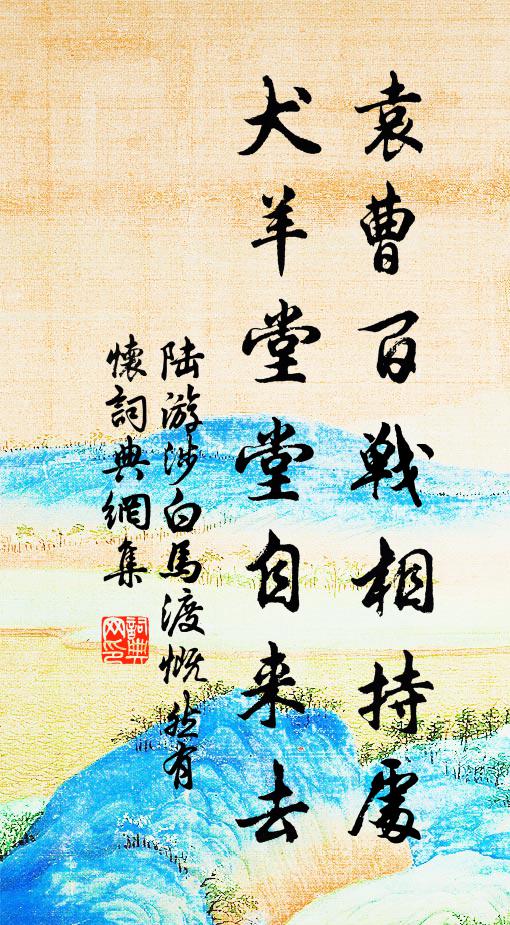 袁曹百戰相持處
犬羊堂堂自来去
陆游涉白馬渡慨然有
懷詞典網集